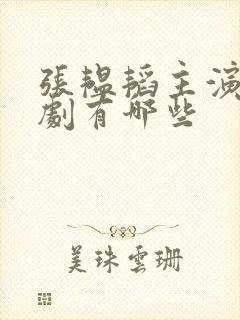 張韞韜主演
劇有哪些
美珠雲珊